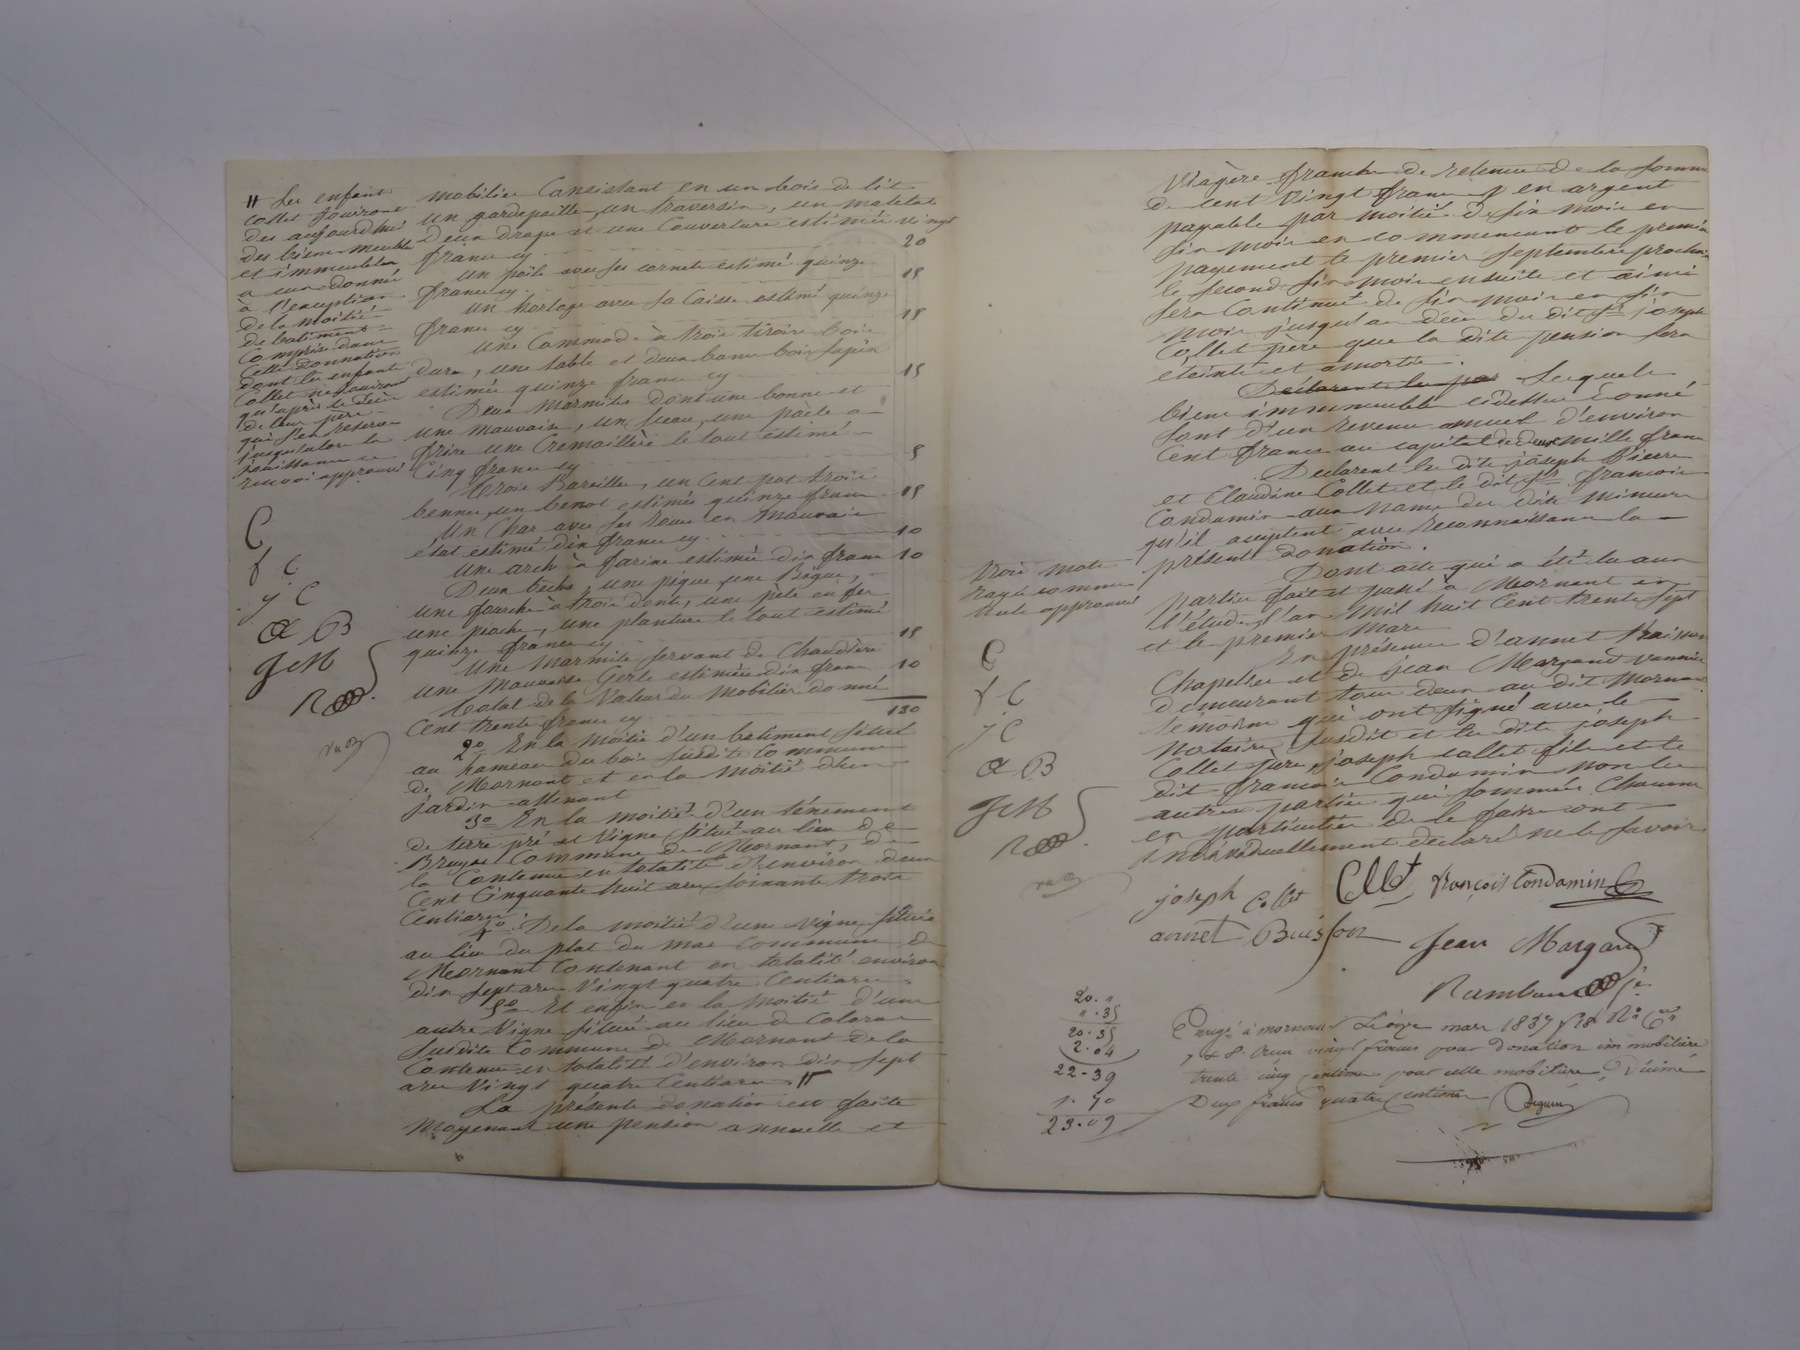 mobilier Consistant en un bois de lit
un gardepaille, un traversin, un matelat
deux draps et une Couverture estimée vingt
francs cy 20
un poële avec ses cornets estimé quinze
francs cy. 15
un horloge avec sa Caisse estimé quinze
francs cy. 15
une Commode à trois tiroirs bois
dure, une table et deux bancs bois sapin
estimés quinze francs cy 15
Deux Marmites dont une bonne et
une mauvaise, un seau, une poële a
frire une Cremaillère le tout estimé
Cinq francs cy 5
trois Barrilles, un Cent pot trois
bennes, un benot estimés quinze francs 15
Un Char avec ses roues en mauvais
état estimé dix francs cy. 10
une arch à farine estimée dix francs 10
Deux bêches, une pique, une Bigue,
une fourche à trois dents, une pele en fer
une pioche, une planture le tout estimé
quinze francs cy 15
Une Marmite servant de Chaudière
une Mauvaise Gerle estimées dix francs 10
total de la Valeur du Mobilier donné
Cent trente francs cy 130
2° En la moitié d'un bâtiment situé
au hameau du bois susdite Commune
de Mornant et en la moitié d'un
jardin attenant
3° En la moitié d'un ténement
de terre pré et Vigne situé au lieu de
Bruyas Commune de Mornant, de
la Contenue en totalité d'environ deux
Cent Cinquante huit ares soixante trois
Centiares.
4° De la moitié d'une Vigne située
au lieu du plat du mas Commune de
Mornant Contenant en totalité environ
dix sept ares Vingt quatre Centiares
5° Et enfin en la moitié d'une
autre Vigne située au lieu de Coloras
susdite Commune de Mornant de la
Contenue en totalité d'environ dix sept
ares Vingt quatre Centiares. //
La présente donation est faite
Moyenant une pension annuelle et
// Les enfants
Collet jouiront
des aujourdhui
des biens meubles
et immeubles
a eux donnés
à l'exception
de la moitié
de bâtiment
Comprise dans
Cette donnation
dont les enfants
Collet ne jouiront
qu'après le décès
de leur père
qui s'en réserve
jusqu'alors la
jouissance ce
renvoi approuvé
C
f C
j C
a B
J M
R
Viagère franche de retenue de la somme
de cent Vingt francs en argent
payable par moitié de six mois en
six mois en commencant le premier
payement le premier septembre prochain
le second six mois ensuite et ainsi
sera Continué de six mois en six
mois jusqu'au décès du dit sr joseph
Collet père que la dite pension sera
éteinte et amortie.
Déclarent les par lesquels
biens immeubles cidessus donné
sont d'un revenu annuel d'environ
Cent francs au capital de deux mille francs
Déclarent les dits joseph Pierre
et Claudine Collet et le dit sr francois
Condamin aux noms des dits Mineurs
qu'il acceptent avec reconnaissance la
présent donation.
Dont acte qui a été lu aux
parties fait et passé a Mornant en
l'étude l'an Mil huit Cent trente sept
et le premier Mars
En présence d'annet Buisson
Chapelier et de jean Margand Vannier
demeurant tous deux au dit Mornant
témoins qui ont signé avec le
Notaire susdit et les dits joseph
Collet père, joseph collet fils et le
dit francois Condamin non les
autres parties qui sommés Chacun
en particulier de le faire ont
individuellement déclaré ne le savoir.
trois mots
rayés comme
nuls approuvé
C
f C
j C
a B
J M
R
joseph Collet Collet françois Condamin
annet Buisson Jean Margand
20. "
" . 35
20. 35
2. 04
22 - 39
1. 70
Enrégé à mornant Le onze mars 1837
vingt francs pour donation immobilière
trente cinq centimes pour celle mobilière, Décime
Deux francs quatre centimes